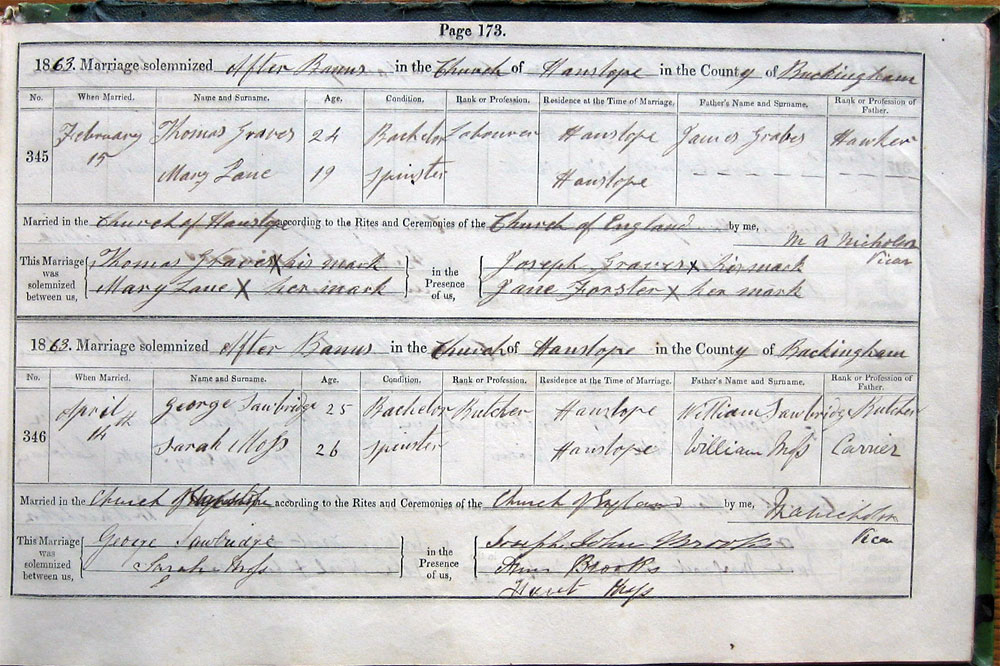 Page 173.
1863. Marriage solemnized After Banns in the Church of Hanslope in the County of Buckingham
No. When Married. Name and Surname. Age. Condition. Rank or Profession. Residence at the Time of Marriage. Father's Name and Surname. Rank or Profession of Father.
345 February 15 Thomas Graves 24 Bachelor Labourer Hanslope James Graves Hawker
Mary Lane 19 Spinster Hanslope — — — — — —
Married in the Church of Hanslope according to the Rites and Ceremonies of the Church of England by me,
M A Nicholson
Vicar
This Marriage was solemnized between us, Thomas Graves X his mark in the Presence of us, Joseph Graves X his mark
Mary Lane X her mark Jane Forster X her mark
1863. Marriage solemnized After Banns in the Church of Hanslope in the County of Buckingham
No. When Married. Name and Surname. Age. Condition. Rank or Profession. Residence at the Time of Marriage. Father's Name and Surname. Rank or Profession of Father.
346 April George Sawbridge 25 Bachelor Butcher Hanslope William Sawbridge Butcher
Sarah Moss 26 Spinster Hanslope William Moss Carrier
Married in the Church of Hanslope according to the Rites and Ceremonies of the Church of England by me, M A Nicholson
Vicar
This Marriage was solemnized between us, George Sawbridge in the Presence of us, Joseph John Brooks
Sarah Moss Ann Brooks
Moss